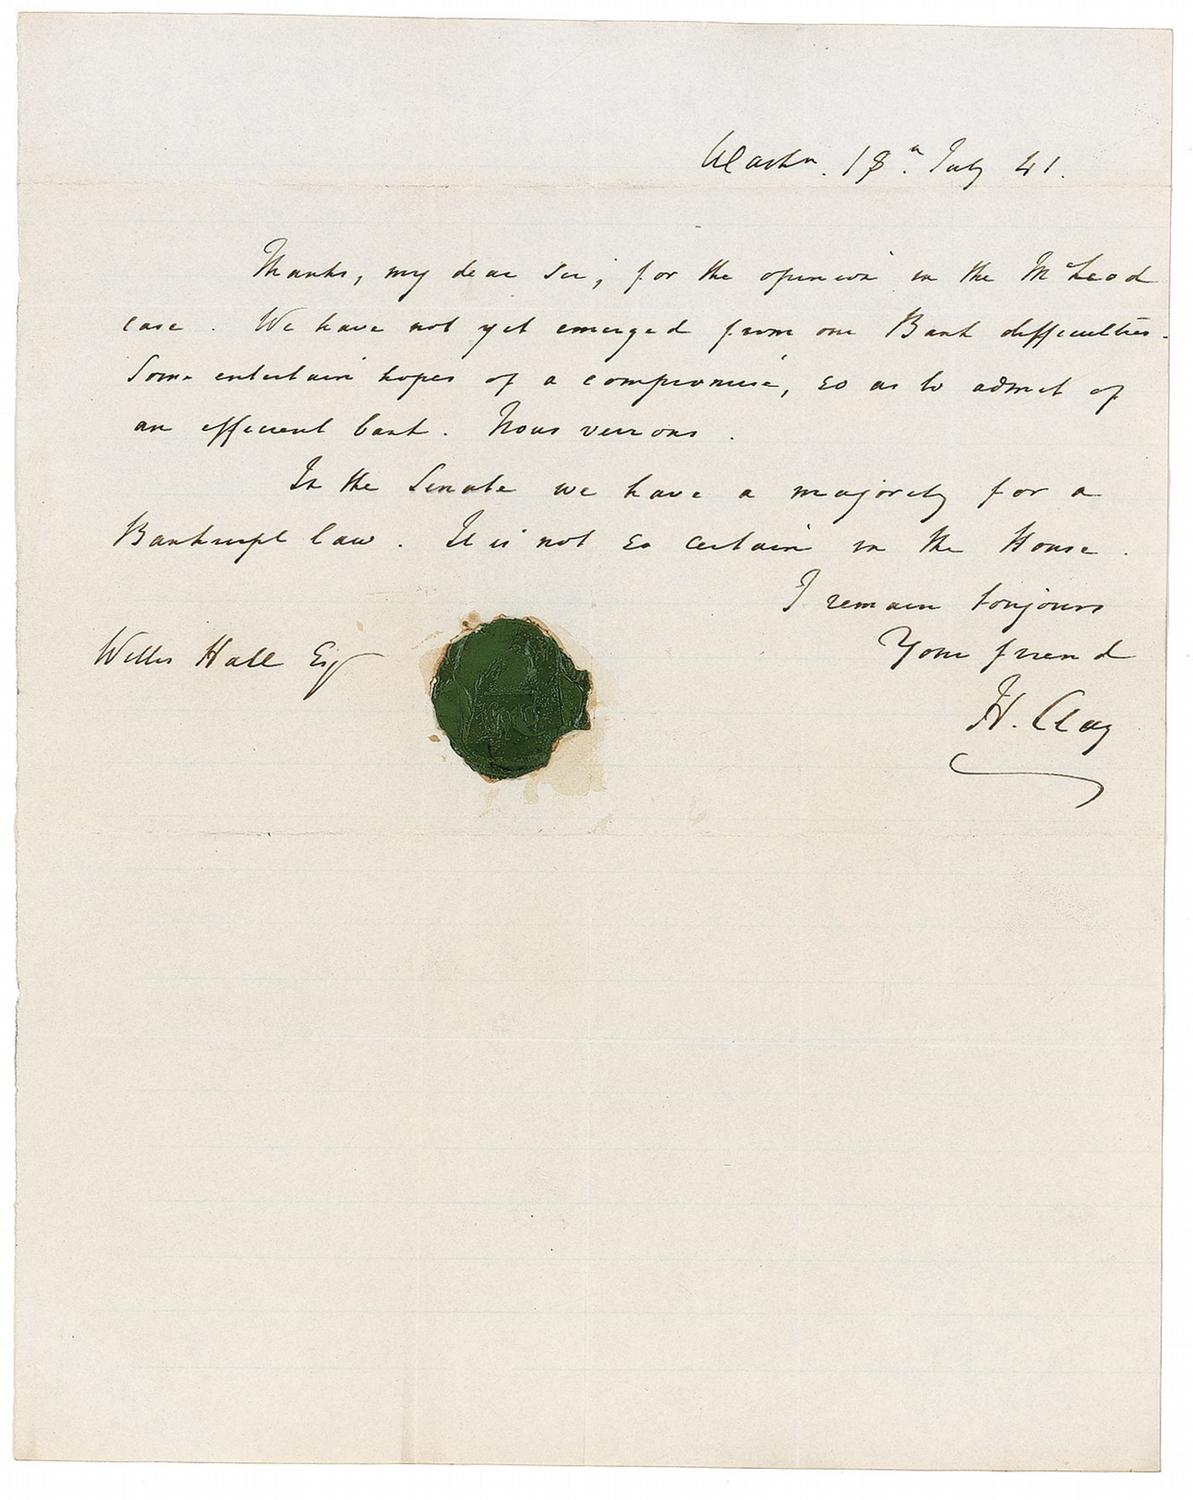 Washn. 18th. July 41.
Thanks, my dear Sir, for the opinion in the McLeod
case. We have not yet emerged from our Bank difficulties.
Some entertain hopes of a compromise, so as to admit of
an efficient bank. Nous verrons.
In the Senate we have a majority for a
Bankrupt law. It is not so certain in the House.
I remain toujours
Your friend
Willis Hall Esq
H. Clay